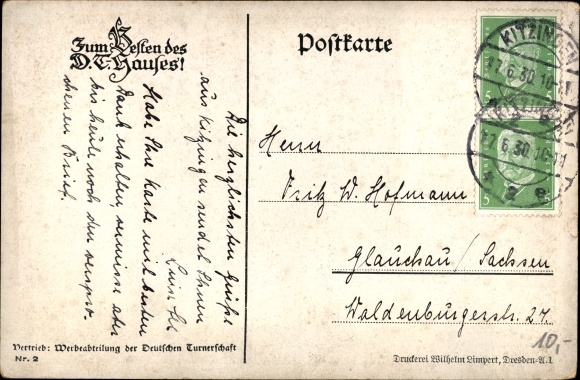 Zum Besten des
D.T.-Hauses!
Postkarte
KITZINGEN
27.6.30.10-11
KITZINGEN
27.6.30.10-11
5
5
Die herzlichsten Grüße
aus Kitzingen sendet Ihnen
Habe Ihre Karte mit bestem
Dank erhalten, vermisse aber
bis heute noch den verspro-
chenen Brief.
Herrn
Fritz W. Hofmann
Glauchau/Sachsen
Waldenburgerstr. 27.
10,-
Vertrieb: Werbeabteilung der Deutschen Turnerschaft
Nr. 2
Druckerei Wilhelm Limpert, Dresden-A.1